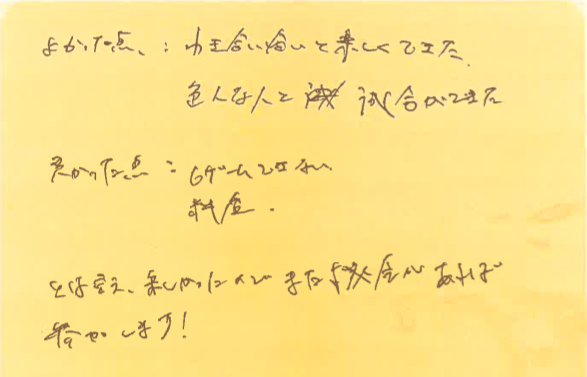 よかった点、: 和気合い合いと楽しくできた
色んな人と 試合ができた
悪かった点 : 6ゲームできない
料金.
とは言え、楽しかったんで また機会があれば
参加します!